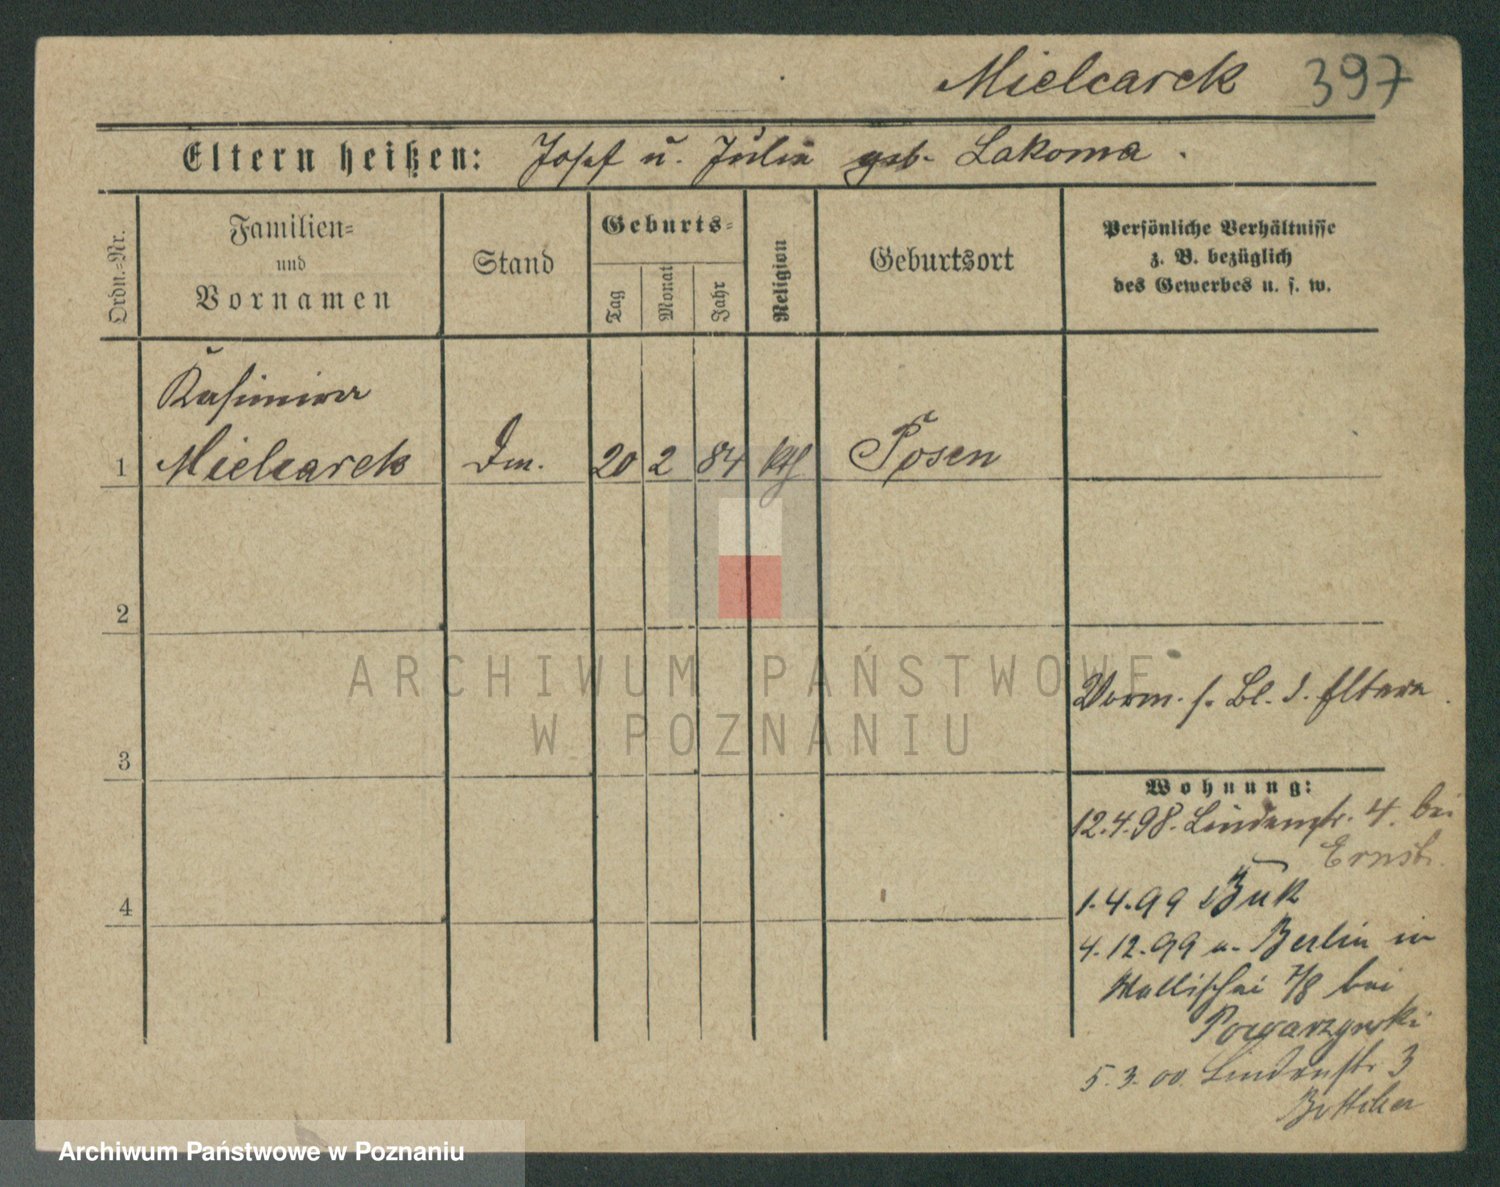 Mielcarek 397
Eltern heißen: Josef u. Julia geb. Lakoma.
Ordn.=Nr.
Familien=
und
Vornamen
Stand
Geburts=
Tag
Monat
Jahr
Religion
Geburtsort
Persönliche Verhältnisse
z. B. bezüglich
des Gewerbes u. s. w.
Kasimira
1 Mielcarek Dm. 20 2 84 kth Posen
2
ARCHIWUM PAŃSTWOWE
W POZNANIU
Vorm. s. Bl. d. Eltern.
3
Wohnung:
12.4.98. Lindenstr. 4. bei
Ernst.
4
1.4.99 Buk
4.12.99 v. Berlin in
Wallischei 7/8 bei
5.3.00. Lindenstr 3
Bottcher
Archiwum Państwowe w Poznaniu